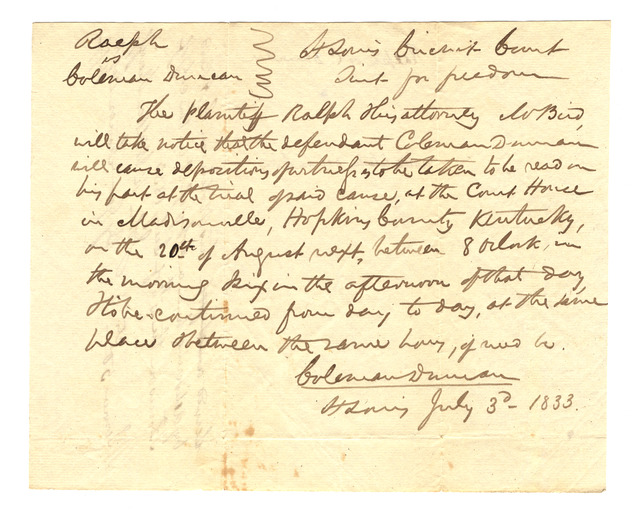 Ralph
vs
Coleman Duncan
St Louis Circuit Court
Suit for freedom
The plaintiff Ralph & his attorney Mr Bird,
will take notice that the defendant Coleman Duncan
will cause depositions of witnesses to be taken to be read on
his part at the trial of said cause, at the Court House
in Madisonville, Hopkins County Kentucky,
on the 20th of August next, between 8 Oclock, in
the morning & six in the afternoon of that day,
& to be continued from day to day, at the same
place & between the same hours, if need be.
Coleman Duncan
St Louis July 3d - 1833.